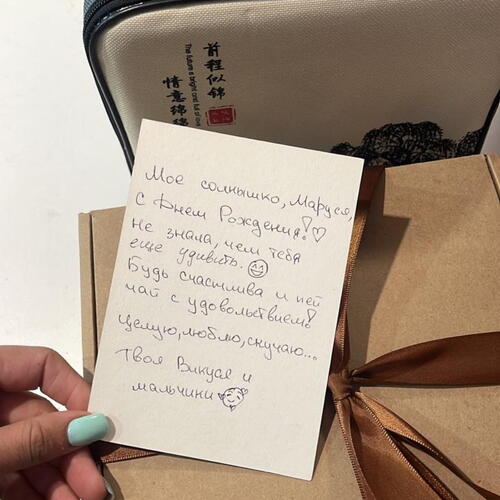 前程似锦
The future is bright and full of
情意绵绵
Мое солнышко, Маруся,
С Днем Рождения!♡
Не знала, чем тебя
еще удивить.
Будь счастлива и пей
чай с удовольствием!
Целую, люблю, скучаю...
Твоя Викуся и
мальчики